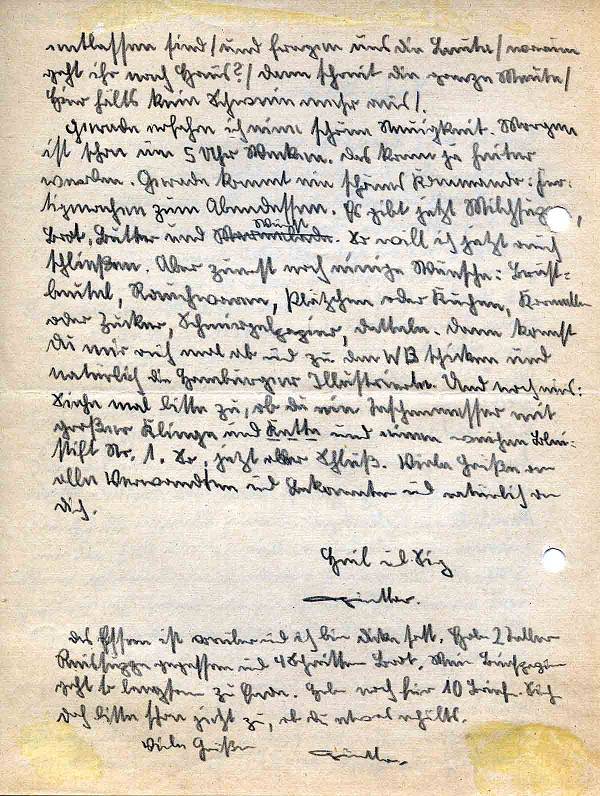 entlassen sind/und fragen uns die Leute/warum
geht ihr nach Haus?/dann schreit die ganze Meute/
hier hälts kein Schwein mehr aus/.
Gerade erfahre ich eine schöne Neuigkeit. Morgen
ist schon um 5 Uhr Wecken. Das kann ja heiter
werden. Gerade kommt ein schönes Kommando: Fer-
tigmachen zum Abendessen. Es gibt jetzt Milchsuppe,
Brot, Butter und Wurst. So will ich jetzt auch
schließen. Aber zuerst noch einige Wünsche: Brust-
beutel, Rauchwaren, Plätzchen oder Kuchen, Bonbons
oder Zucker, Schmirgelpapier, Datteln. Dann kannst
Du mir auch mal ab und zu den WB schicken und
natürlich die Hamburger Illustrierte. Und noch eins:
Siehe mal bitte zu, ob du ein Taschenmesser mit
großer Klinge und Kette und einen weichen Blei-
stift Nr. 1. So, jetzt aber Schluß. Viele Grüße an
alle Verwandten und Bekannten und natürlich an
dich.
Heil und Sieg
Günther.
Das Essen ist vorüber und ich bin dicke satt. Habe 2 Teller
Reissuppe gegessen und 4 Schnitten Brot. Mein Briefpapier
geht so langsam zu Ende. Habe noch für 10 Briefe. Sieh
doch bitte schon jetzt zu, ob du etwas erhälts.
Viele Grüße Günther.